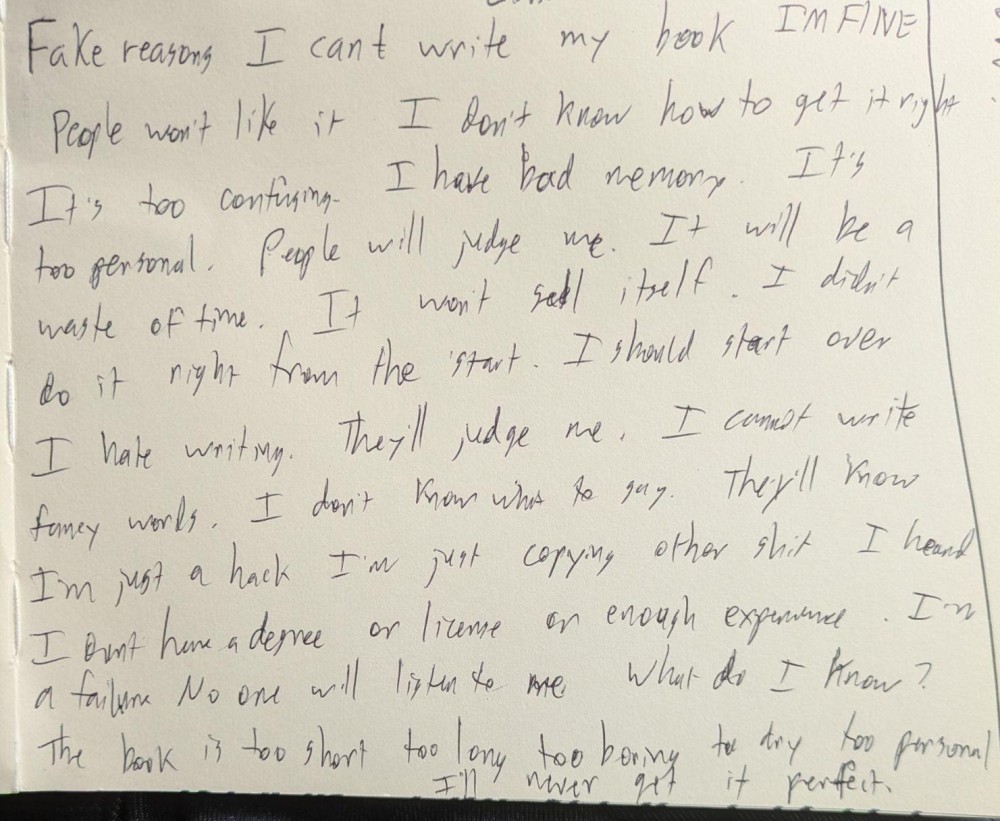 Fake reasons I cant write my book I'M FINE
People won't like it I Don't know how to get it right
It's too confusing. I have bad memory. It's
too personal. People will judge me. It will be a
waste of time. It won't sell itself. I didn't
do it right from the start. I should start over
I hate writing. They'll judge me. I cannot write
fancy words. I don't know what to say. They'll know
I'm just a hack I'm just copying other shit I heard
I Don't have a degree or license or enough experience. I'm
a failure No one will listen to me. What do I know?
The book is too short too long too boring to dry too personal
I'll never get it perfect.